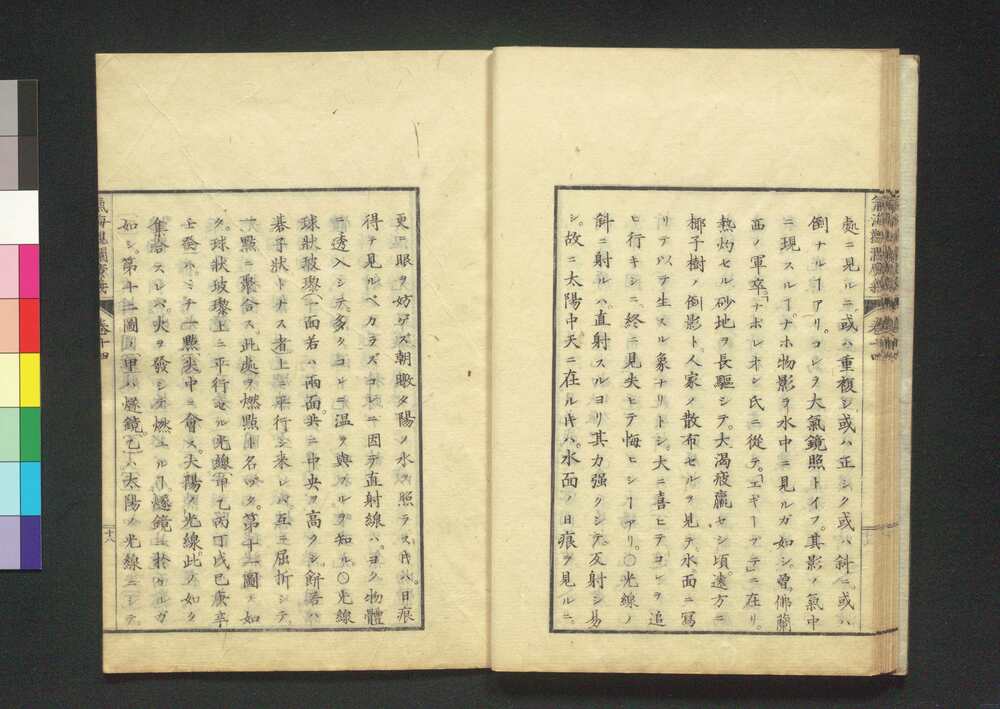 處ニ見ルニ。或ハ重複シ或ハ正シク或ハ斜ニ。或ハ
倒ナルヿアリ。コレヲ大氣鏡照トイフ。其影ノ氣中
ニ現スルヿナホ物影ヲ水中ニ見ルガ如シ。曽佛蘭
西ノ軍卒。ナホレオン氏ニ從テ。エギープテニ在リ。
熱灼セル砂地ヲ長驅シテ。大渇疲羸セシ頃。遠方ニ
椰子樹ノ倒影ト。人家ノ散布セルヲ見テ。水面ニ寫
リテ生スル象ナリトシ。大ニ喜ヒテコレヲ追
ヒ行キシニ。終ニ見失ヒテ悔ヒシヿアリ。〇光線ノ
斜ニ射ルハ。直射スルヨリ其力強クシテ。反射シ易
シ。故ニ太陽中天ニ在ル𪜈ハ。水面ノ日痕ヲ見ルニ。
更ニ眼ヲ妨ゲズ。朝暾夕陽ノ水ヲ照ラス𪜈ハ。日痕
得テ見ルベカラズ。コレニ因テ直射線ハ。ヨク物體
ニ透入シテ。多クコレニ温ヲ與フルヲ知ル。〇光線
球狀玻瓈一面若ハ兩面。共ニ中央ヲ高クシ。餅若ハ
碁子狀トナス者上ニ平行シ来レバ。互ニ屈折シテ。
一點ニ聚合ス。此處ヲ燃點ト名ツク。第十一圖ノ如
ク。球狀玻瓈上ニ平行セル光線。甲乙丙丁戊己庚辛
壬癸ハ。ミナ一點尖中ニ會ス。大陽ノ光線。此ノ如ク
集合スレバ。火ヲ發シ物ヲ燃ユルヿ燧鏡ニ於ケルガ
如シ。第十二圖ノ甲ハ燧鏡。乙ハ太陽ノ光線ニシテ。
氣海觀瀾廣義
卷十四
十六